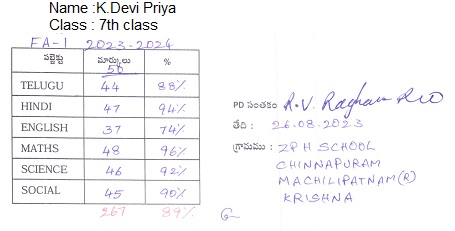 Name :K.Devi Priya
Class : 7th class
FA-1 2023-2024
సబ్జెక్టు మార్కులు %
50
TELUGU 44 88%
HINDI 47 94%
ENGLISH 37 74%
MATHS 48 96%
SCIENCE 46 92%
SOCIAL 45 90%
267 89%
PD సంతకం R.V. Raghava Rao
తేది : 26.08.2023
గ్రామము : ZPH SCHOOL
CHINNAPURAM
MACHILIPATNAM (R)
KRISHNA